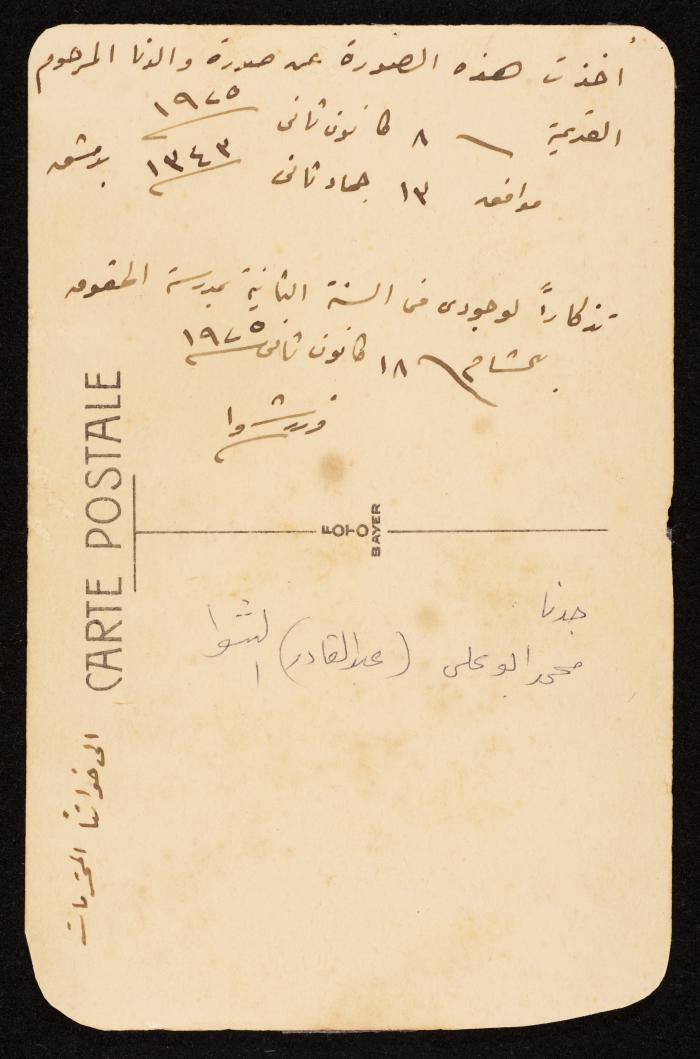 أخذت هذه الصورة عن صورة والدنا المرحوم
القديمة ٨ كانون ثاني ١٩٢٥
موافق ١٣ جماد ثاني ١٣٤٣ بدمشق
تذكاراً لوجودي في السنة الثانية بمدرسة الحقوق
١٨ كانون ثاني ١٩٢٥
CARTE POSTALE
FOTO
BAYER
جدنا
محمد ابو علي (عبدالقادر)
الى خواتنا المحترمات